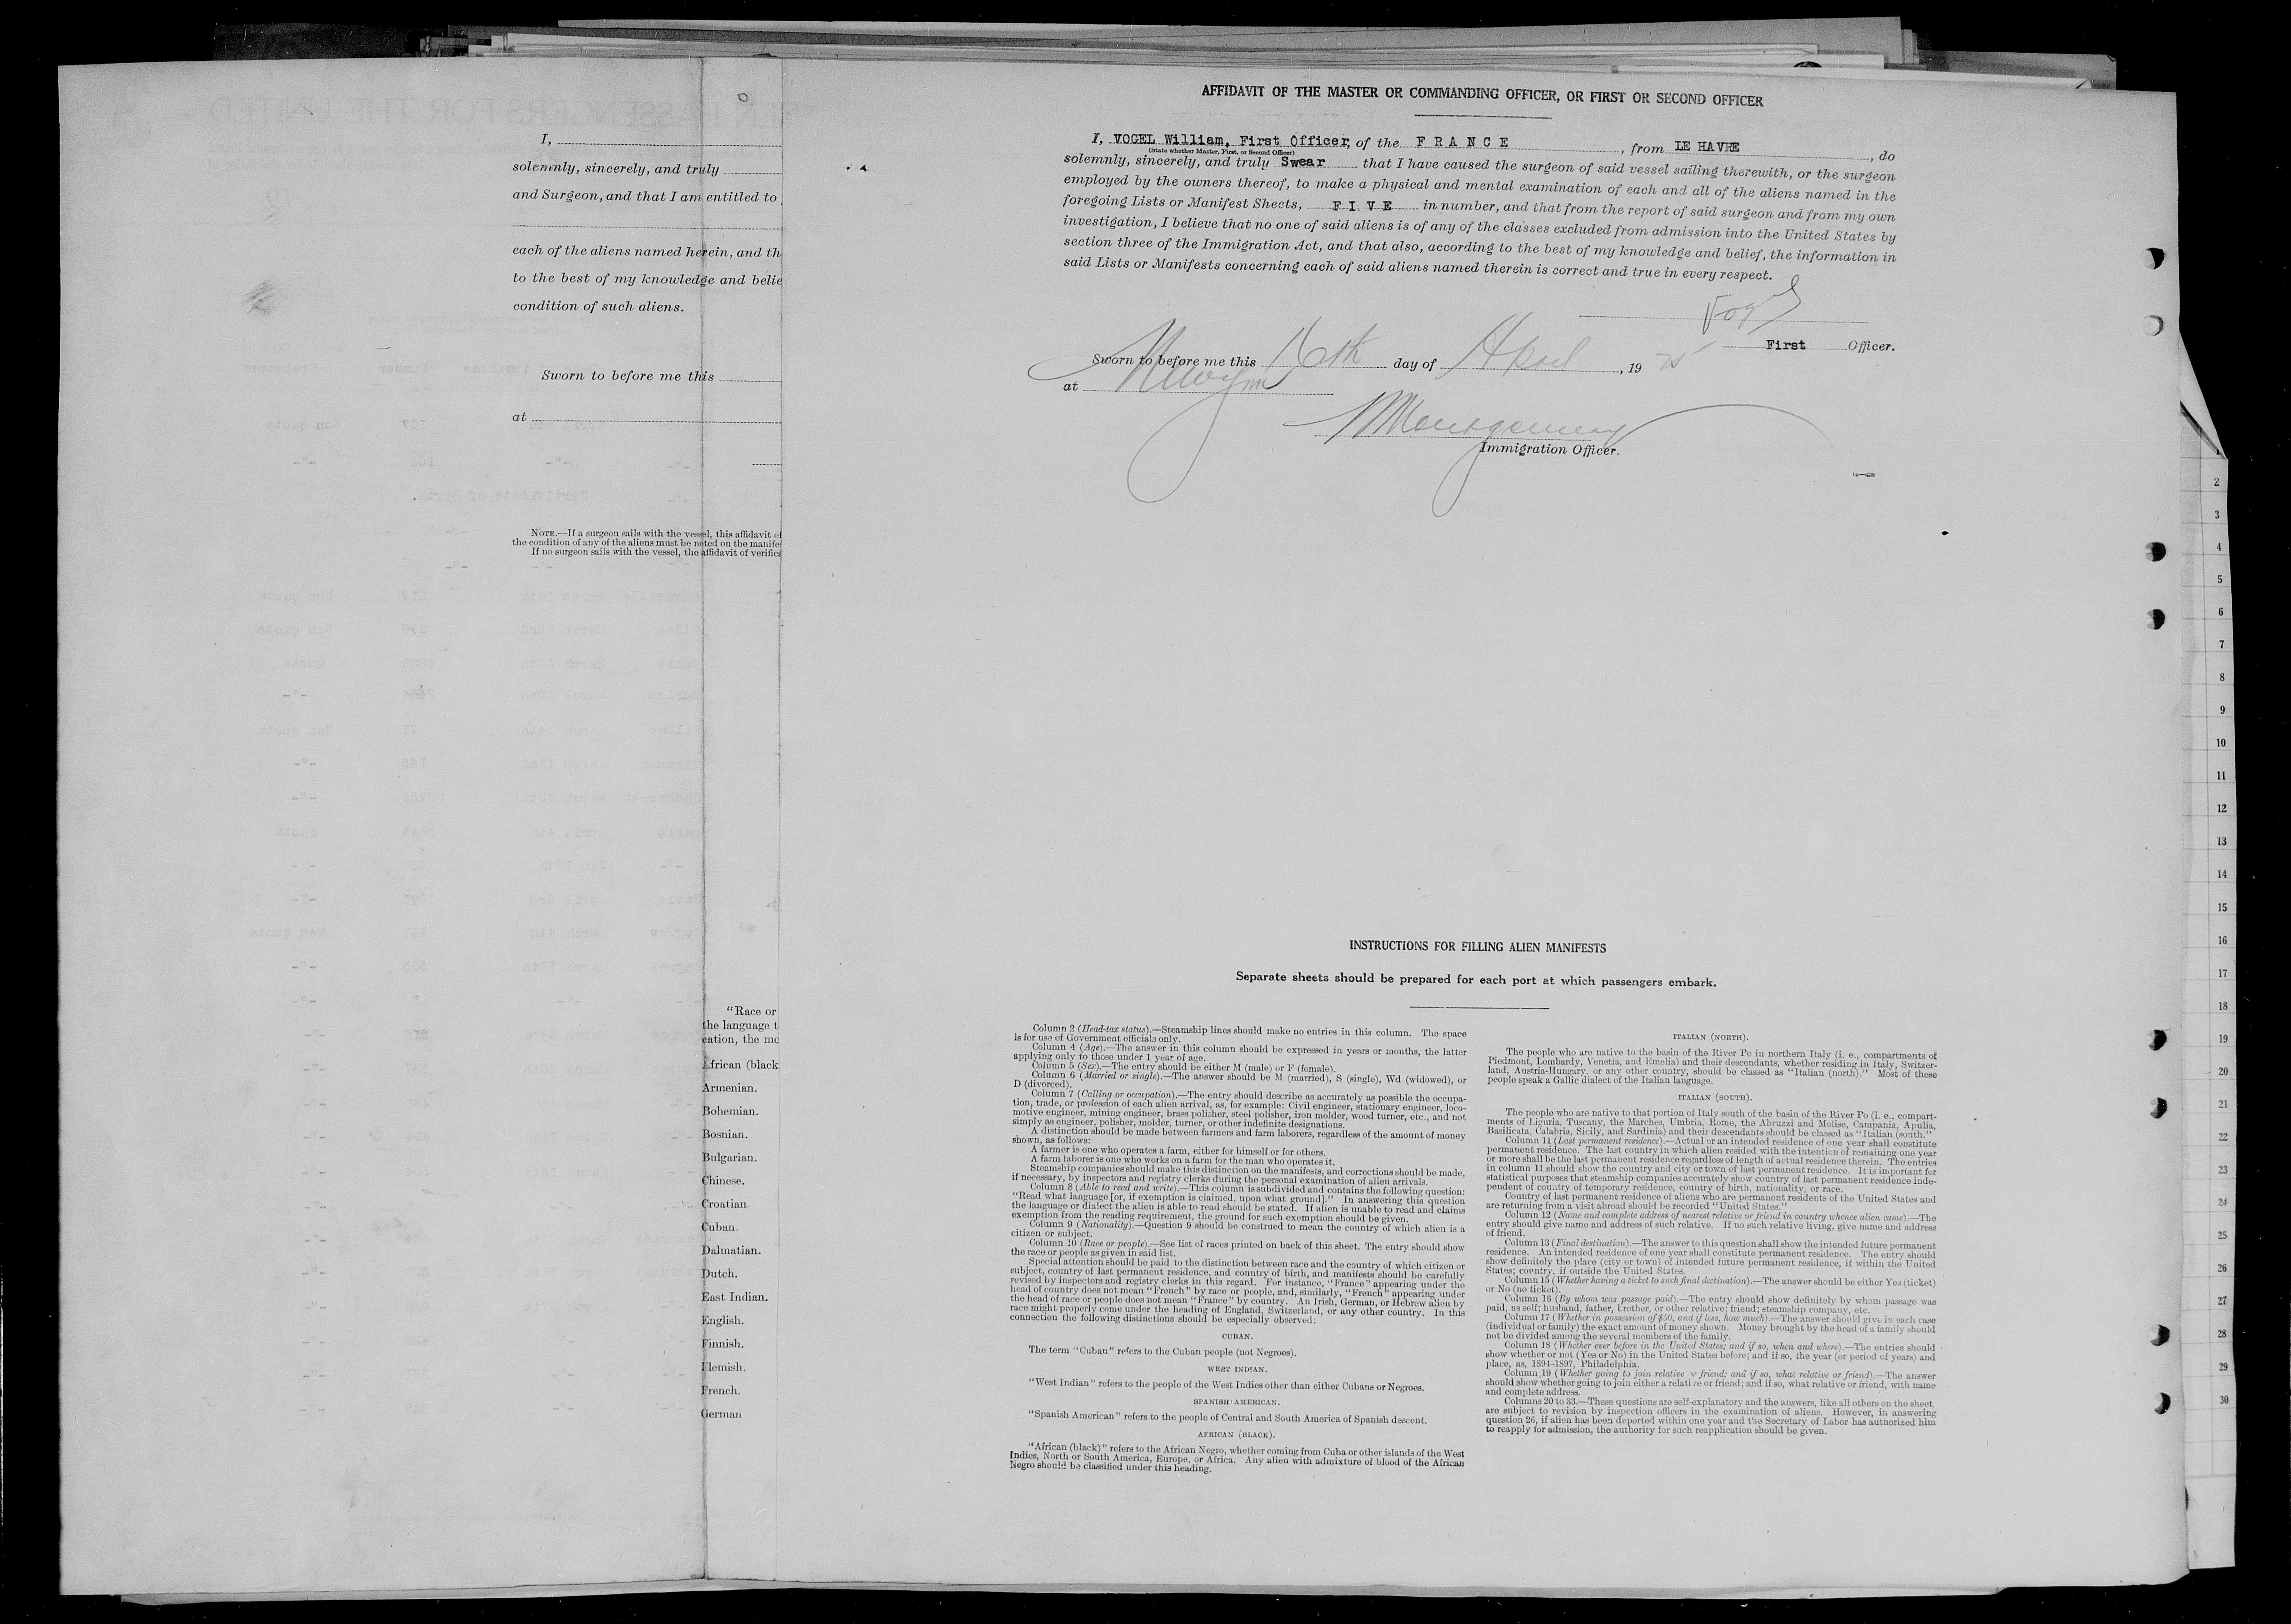 I,
solemnly, sincerely, and truly
and Surgeon, and that I am entitled to
each of the aliens named herein, and th
to the best of my knowledge and belie
condition of such aliens.
Sworn to before me this
at
NOTE.—If a surgeon sails with the vessel, this affidavit of
the condition of any of the aliens must be noted on the manifes
If no surgeon sails with the vessel, the affidavit of verifica
"Race or
the language t
cation, the mo
African (black
Armenian.
Bohemian.
Bosnian.
Bulgarian.
Chinese.
Croatian.
Cuban.
Dalmatian.
Dutch.
East Indian.
English.
Finnish.
Flemish.
French.
German
AFFIDAVIT OF THE MASTER OR COMMANDING OFFICER, OR FIRST OR SECOND OFFICER
I, VOGEL William, First Officer, of the F R A N C E, from LE HAVRE, do
(State whether Master, First, or Second Officer)
solemnly, sincerely, and truly Swear that I have caused the surgeon of said vessel sailing therewith, or the surgeon
employed by the owners thereof, to make a physical and mental examination of each and all of the aliens named in the
foregoing Lists or Manifest Sheets, F I V E in number, and that from the report of said surgeon and from my own
investigation, I believe that no one of said aliens is of any of the classes excluded from admission into the United States by
section three of the Immigration Act, and that also, according to the best of my knowledge and belief, the information in
said Lists or Manifests concerning each of said aliens named therein is correct and true in every respect.
Vogel
First Officer.
Sworn to before me this 16th day of April, 1925
at
Montgomery
Immigration Officer.
INSTRUCTIONS FOR FILLING ALIEN MANIFESTS
Separate sheets should be prepared for each port at which passengers embark.
Column 2 (Head-tax status).—Steamship lines should make no entries in this column. The space
is for use of Government officials only.
Column 4 (Age).—The answer in this column should be expressed in years or months, the latter
applying only to those under 1 year of age.
Column 5 (Sex).—The entry should be either M (male) or F (female).
Column 6 (Married or single).—The answer should be M (married), S (single), Wd (widowed), or
D (divorced).
Column 7 (Calling or occupation).—The entry should describe as accurately as possible the occupa-
tion, trade, or profession of each alien arrival, as, for example: Civil engineer, stationary engineer, loco-
motive engineer, mining engineer, brass polisher, steel polisher, iron molder, wood turner, etc., and not
simply as engineer, polisher, molder, turner, or other indefinite designations.
A distinction should be made between farmers and farm laborers, regardless of the amount of money
shown, as follows:
A farmer is one who operates a farm, either for himself or for others.
A farm laborer is one who works on a farm for the man who operates it.
Steamship companies should make this distinction on the manifests, and corrections should be made,
if necessary, by inspectors and registry clerks during the personal examination of alien arrivals.
Column 8 (Able to read and write).—This column is subdivided and contains the following question:
"Read what language [or, if exemption is claimed, upon what ground]." In answering this question
the language or dialect the alien is able to read should be stated. If alien is unable to read and claims
exemption from the reading requirement, the ground for such exemption should be given.
Column 9 (Nationality).—Question 9 should be construed to mean the country of which alien is a
citizen or subject.
Column 10 (Race or people).—See list of races printed on back of this sheet. The entry should show
the race or people as given in said list.
Special attention should be paid to the distinction between race and the country of which citizen or
subject, country of last permanent residence, and country of birth, and manifests should be carefully
revised by inspectors and registry clerks in this regard. For instance, "France" appearing under the
head of country does not mean "French" by race or people, and, similarly, "French" appearing under
the head of race or people does not mean "France" by country. An Irish, German, or Hebrew alien by
race might properly come under the heading of England, Switzerland, or any other country. In this
connection the following distinctions should be especially observed:
CUBAN.
The term "Cuban" refers to the Cuban people (not Negroes).
WEST INDIAN.
"West Indian" refers to the people of the West Indies other than either Cubans or Negroes.
SPANISH AMERICAN.
"Spanish American" refers to the people of Central and South America of Spanish descent.
AFRICAN (BLACK).
"African (black)" refers to the African Negro, whether coming from Cuba or other islands of the West
Indies, North or South America, Europe, or Africa. Any alien with admixture of blood of the African
Negro should be classified under this heading.
ITALIAN (NORTH).
The people who are native to the basin of the River Po in northern Italy (i. e., compartments of
Piedmont, Lombardy, Venetia, and Emelia) and their descendants, whether residing in Italy, Switzer-
land, Austria-Hungary, or any other country, should be classed as "Italian (north)." Most of these
people speak a Gallic dialect of the Italian language.
ITALIAN (SOUTH).
The people who are native to that portion of Italy south of the basin of the River Po (i. e., compart-
ments of Liguria, Tuscany, the Marches, Umbria, Rome, the Abruzzi and Molise, Campania, Apulia,
Basilicata, Calabria, Sicily, and Sardinia) and their descendants should be classed as "Italian (south."
Column 11 (Last permanent residence).—Actual or an intended residence of one year shall constitute
permanent residence. The last country in which alien resided with the intention of remaining one year
or more shall be the last permanent residence regardless of length of actual residence therein. The entries
in column 11 should show the country and city or town of last permanent residence. It is important for
statistical purposes that steamship companies accurately show country of last permanent residence inde-
pendent of country of temporary residence, country of birth, nationality, or race.
Country of last permanent residence of aliens who are permanent residents of the United States and
are returning from a visit abroad should be recorded "United States."
Column 12 (Name and complete address of nearest relative or friend in country whence alien came).—The
entry should give name and address of such relative. If no such relative living, give name and address
of friend.
Column 13 (Final destination).—The answer to this question shall show the intended future permanent
residence. An intended residence of one year shall constitute permanent residence. The entry should
show definitely the place (city or town) of intended future permanent residence, if within the United
States; country, if outside the United States.
Column 15 (Whether having a ticket to such final destination).—The answer should be either Yes (ticket)
or No (no ticket).
Column 16 (By whom was passage paid).—The entry should show definitely by whom passage was
paid, as self; husband, father, brother, or other relative; friend; steamship company, etc.
Column 17 (Whether in possession of $50, and if less, how much).—The answer should give in each case
(individual or family) the exact amount of money shown. Money brought by the head of a family should
not be divided among the several members of the family.
Column 18 (Whether ever before in the United States; and if so, when and where).—The entries should
show whether or not (Yes or No) in the United States before; and if so, the year (or period of years) and
place, as, 1894-1897, Philadelphia.
Column 19 (Whether going to join relative or friend; and if so, what relative or friend).—The answer
should show whether going to join either a relative or friend; and if so, what relative or friend, with name
and complete address.
Columns 20 to 33.—These questions are self-explanatory and the answers, like all others on the sheet,
are subject to revision by inspection officers in the examination of aliens. However, in answering
question 26, if alien has been deported within one year and the Secretary of Labor has authorized him
to reapply for admission, the authority for such reapplication should be given.
2
3
4
5
6
7
8
9
10
11
12
13
14
15
16
17
18
19
20
21
22
23
24
25
26
27
28
29
30